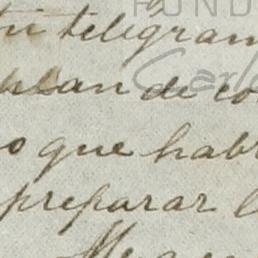 FUND
tu telegram
plan de co
o que habr
preparar l